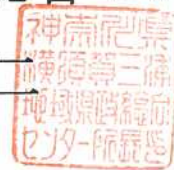 神奈川県
横須賀三浦
地域県政総合
センター所長之印